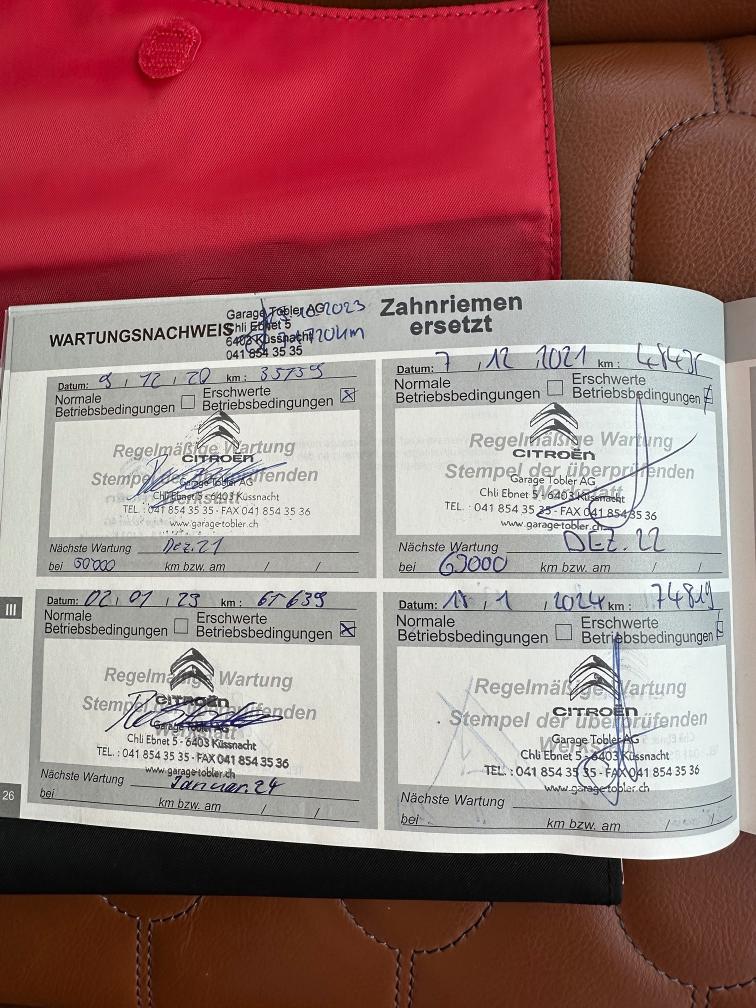 Garage Tobler AG
Chli Ebnet 5
6403 Küssnacht
041 854 35 35
2023
WARTUNGSNACHWEIS
Zahnriemen
ersetzt
Datum: 9 / 12 / 20 km: 35739
Normale
Betriebsbedingungen
Erschwerte
Betriebsbedingungen
Regelmäßige Wartung
CITROËN
Stempel der überprüfenden
Garage Tobler AG
Chli Ebnet 5 - 6403 Küssnacht
TEL. : 041 854 35 35 - FAX 041 854 35 36
www.garage-tobler.ch
Nächste Wartung Dez. 21
bei 50'000 km bzw. am / /
Datum: 7 / 12 / 2021 km:
Normale
Betriebsbedingungen
Erschwerte
Betriebsbedingungen
Regelmäßige Wartung
CITROËN
Stempel der überprüfenden
Werkstatt
Garage Tobler AG
Chli Ebnet 5 - 6403 Küssnacht
TEL. : 041 854 35 35 - FAX 041 854 35 36
www.garage-tobler.ch
Nächste Wartung DEZ. 22
bei 63000 km bzw. am / /
III
Datum: 02 / 01 / 23 km: 61639
Normale
Betriebsbedingungen
Erschwerte
Betriebsbedingungen
Regelmäßige Wartung
CITROËN
Stempel der überprüfenden
Werkstatt
Garage Tobler AG
Chli Ebnet 5 - 6403 Küssnacht
TEL. : 041 854 35 35 - FAX 041 854 35 36
www.garage-tobler.ch
Nächste Wartung Januar 24
bei km bzw. am / /
Datum: 18 / 1 / 2024 km: 74819
Normale
Betriebsbedingungen
Erschwerte
Betriebsbedingungen
Regelmäßige Wartung
CITROËN
Stempel der überprüfenden
Werkstatt
Garage Tobler AG
Chli Ebnet 5 - 6403 Küssnacht
TEL. : 041 854 35 35 - FAX 041 854 35 36
www.garage-tobler.ch
Nächste Wartung
bei km bzw. am / /
26